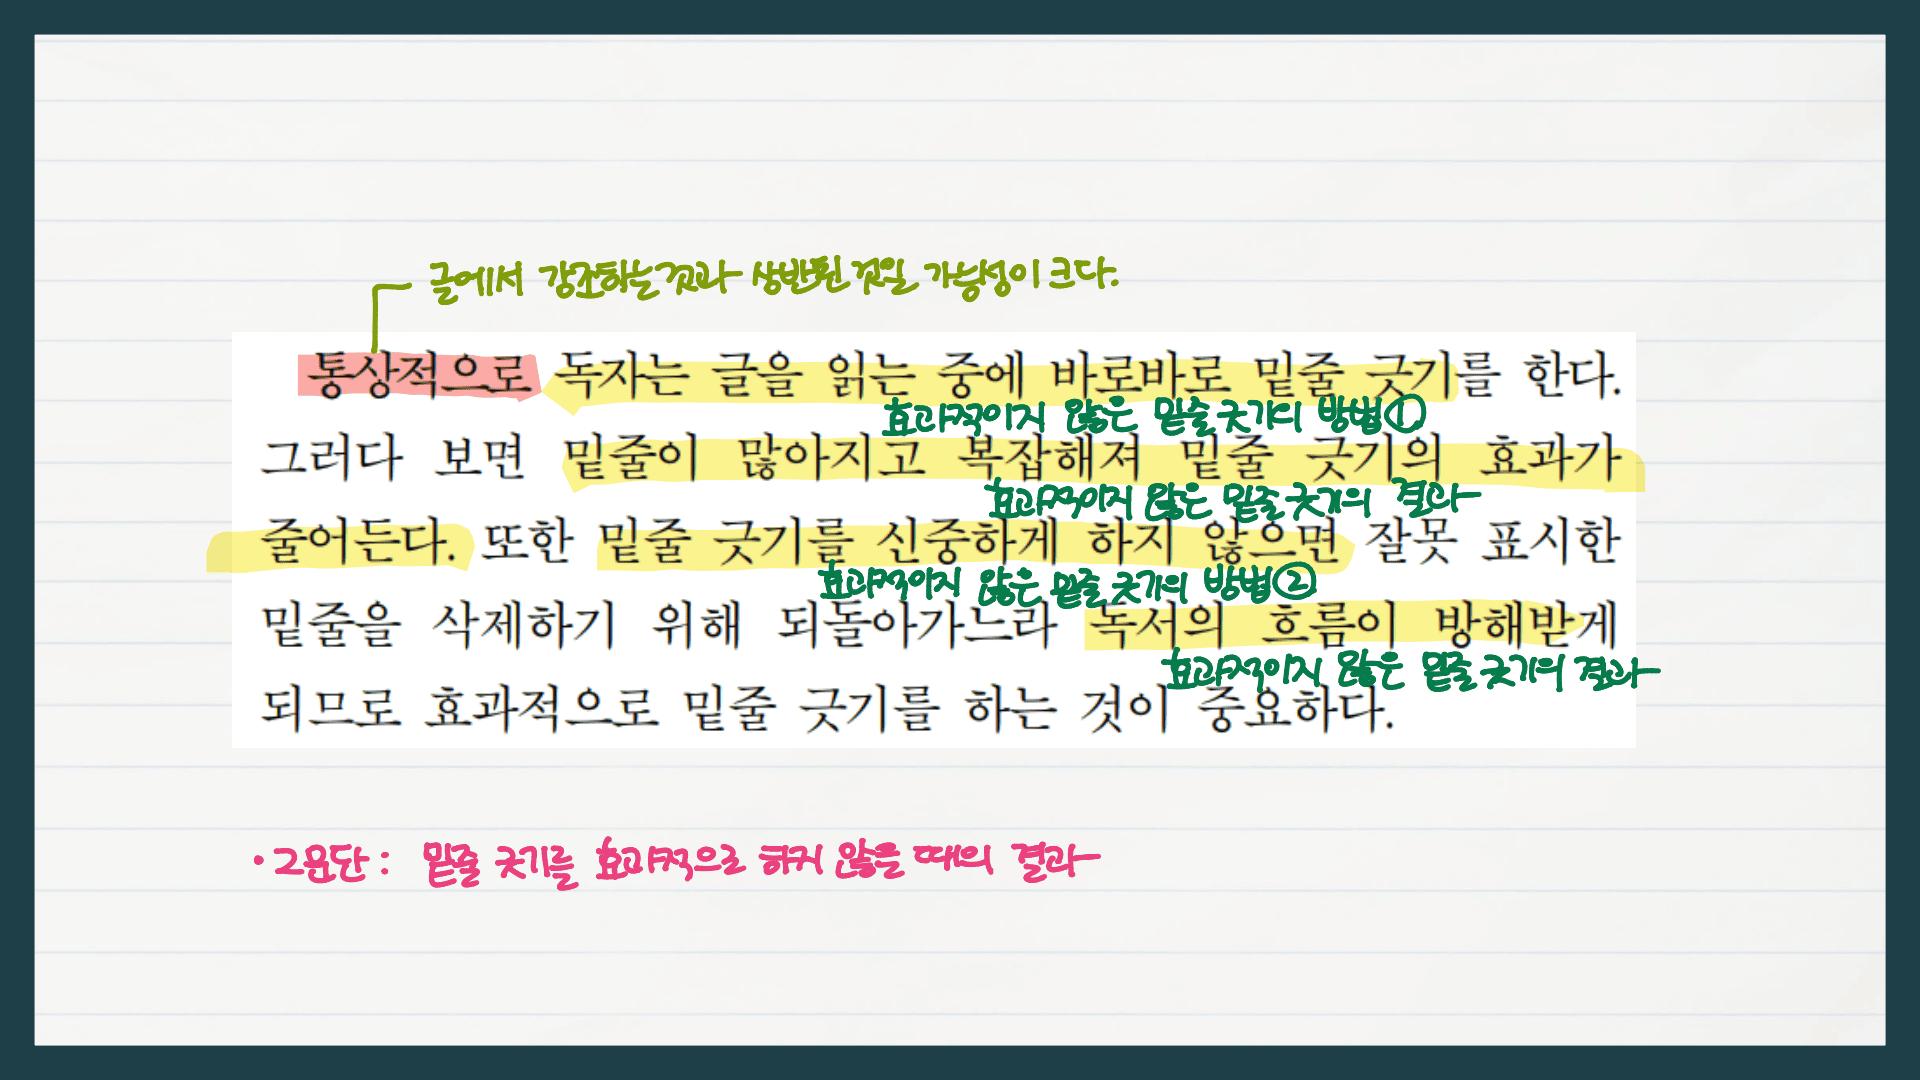 글에서 강조하는것과 상반된 것일 가능성이 크다.
통상적으로 독자는 글을 읽는 중에 바로바로 밑줄 긋기를 한다.
효과적이지 않은 밑줄 긋기의 방법①
그러다 보면 밑줄이 많아지고 복잡해져 밑줄 긋기의 효과가
효과적이지 않은 밑줄 긋기의 결과
줄어든다. 또한 밑줄 긋기를 신중하게 하지 않으면 잘못 표시한
효과적이지 않은 밑줄 긋기의 방법②
밑줄을 삭제하기 위해 되돌아가느라 독서의 흐름이 방해받게
효과적이지 않은 밑줄 긋기의 결과
되므로 효과적으로 밑줄 긋기를 하는 것이 중요하다.
• 2문단 : 밑줄 긋기를 효과적으로 하지 않을 때의 결과